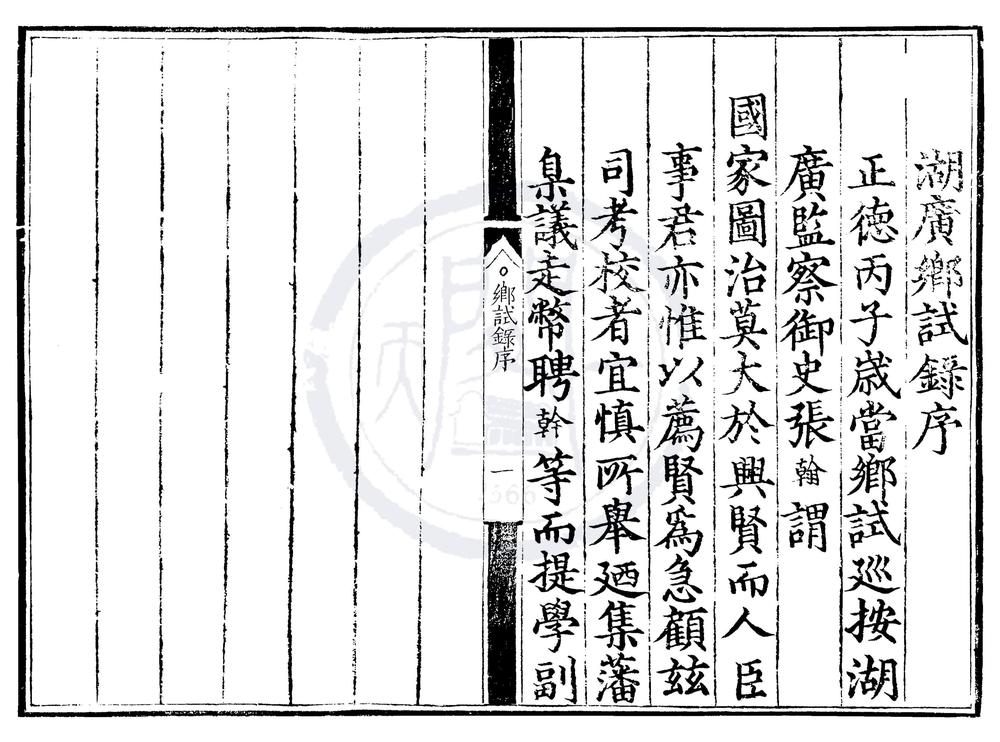 湖廣鄉試錄序
正德丙子歲當鄉試巡按湖
廣監察御史張翰謂
國家圖治莫大於興賢而人臣
事君亦惟以薦賢爲急顧兹
司考校者宜慎所舉廼集藩
臬議走幣聘幹等而提學副
鄉試錄序
一